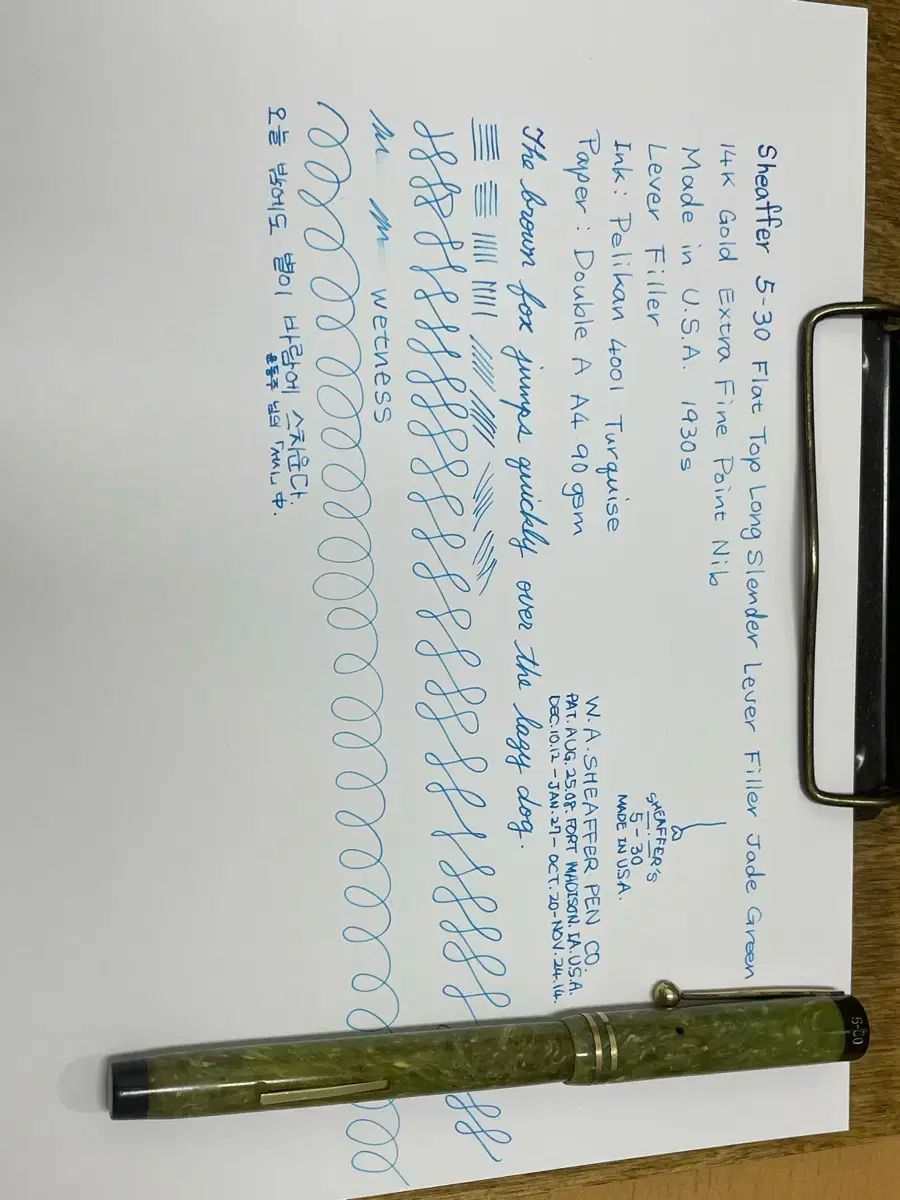 Sheaffer 5-30 Flat Top Long Slender Lever Filler Jade Green
14K Gold Extra Fine Point Nib
Made in U.S.A. 1930s
Lever Filler
Ink: Pelikan 4001 Turquise
Paper: Double A A4 90gsm
SHEAFFER'S
5-30
MADE IN USA.
W.A.SHEAFFER PEN CO.
PAT.AUG.25.08.FORT MADISON.IA.U.S.A.
DEC.10.12-JAN.27-OCT.20-NOV.24.14.
The brown fox jumps quickly over the lazy dog.
wetness
오늘 밤에도 별이 바람에 스치운다.
윤동주 님의 「서시」 中.